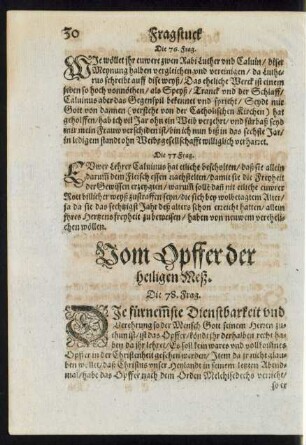 30 Fragstuck
Die 76. Frag.
WIe wöllet jhr euwere zwen Rabi Luther vnd Caluin/ diser
Meynung halben vergleichen vnd vereinigen/ da Luthe-
rus schreibt auff dise weyß/ Das eheliche Werck ist einem
jeden so hoch vonnöthen/ als Speyß/ Tranck vnd der Schlaff/
Caluinus aber das Gegenspil bekennet vnd spricht/ Seydt mit
Gott von dannen (verstehe von der Catholischen Kirchen) hat
geholffen/ hab ich vil Jar ohn ein Weib gelebt/ vnd für daß seyd
mir mein Frauw verschiden ist/ bin ich nun biß in das sechste Jar/
in ledigem stande ohn Weibsgesellschafft williglich verharret.
Die 77. Frag.
EUwer Lehrer Caluinus hat etliche bescholten/ daß sie allein
darumb dem Fleisch essen nachstelleten/ damit sie die Freyheit
der Gewissen erzeygten/ warumb sollt daß nit etliche euwere
Rott billicher weyß zustraffen seyn/ die sich bey wolbetagtem Alter/
ja da sie das sechtzigst Jahr deß alters schon erreicht hatten/ allein
jhres Hertzens freyheit zu beweisen/ haben von neuwem vereheli-
chen wöllen.
Vom Opffer der
heiligen Meß.
Die 78. Frag.
DIe fürnemste Dienstbarkeit vnd
Verehrung so der Mensch Gott seinem Herren zu-
thun ist/ ist das Opffer/ könde jhr derhalben recht ha-
ben da jhr lehret/ Es soll kein wares vnd vollkommes
Opffer in der Christenheit gesehen werden/ Wenn da jr nicht glau-
ben wöllet/ daß Christus vnser Heylandt in seinem letzten Abend-
mal/ habe das Opffer nach dem Orden Melchisedechs verricht/